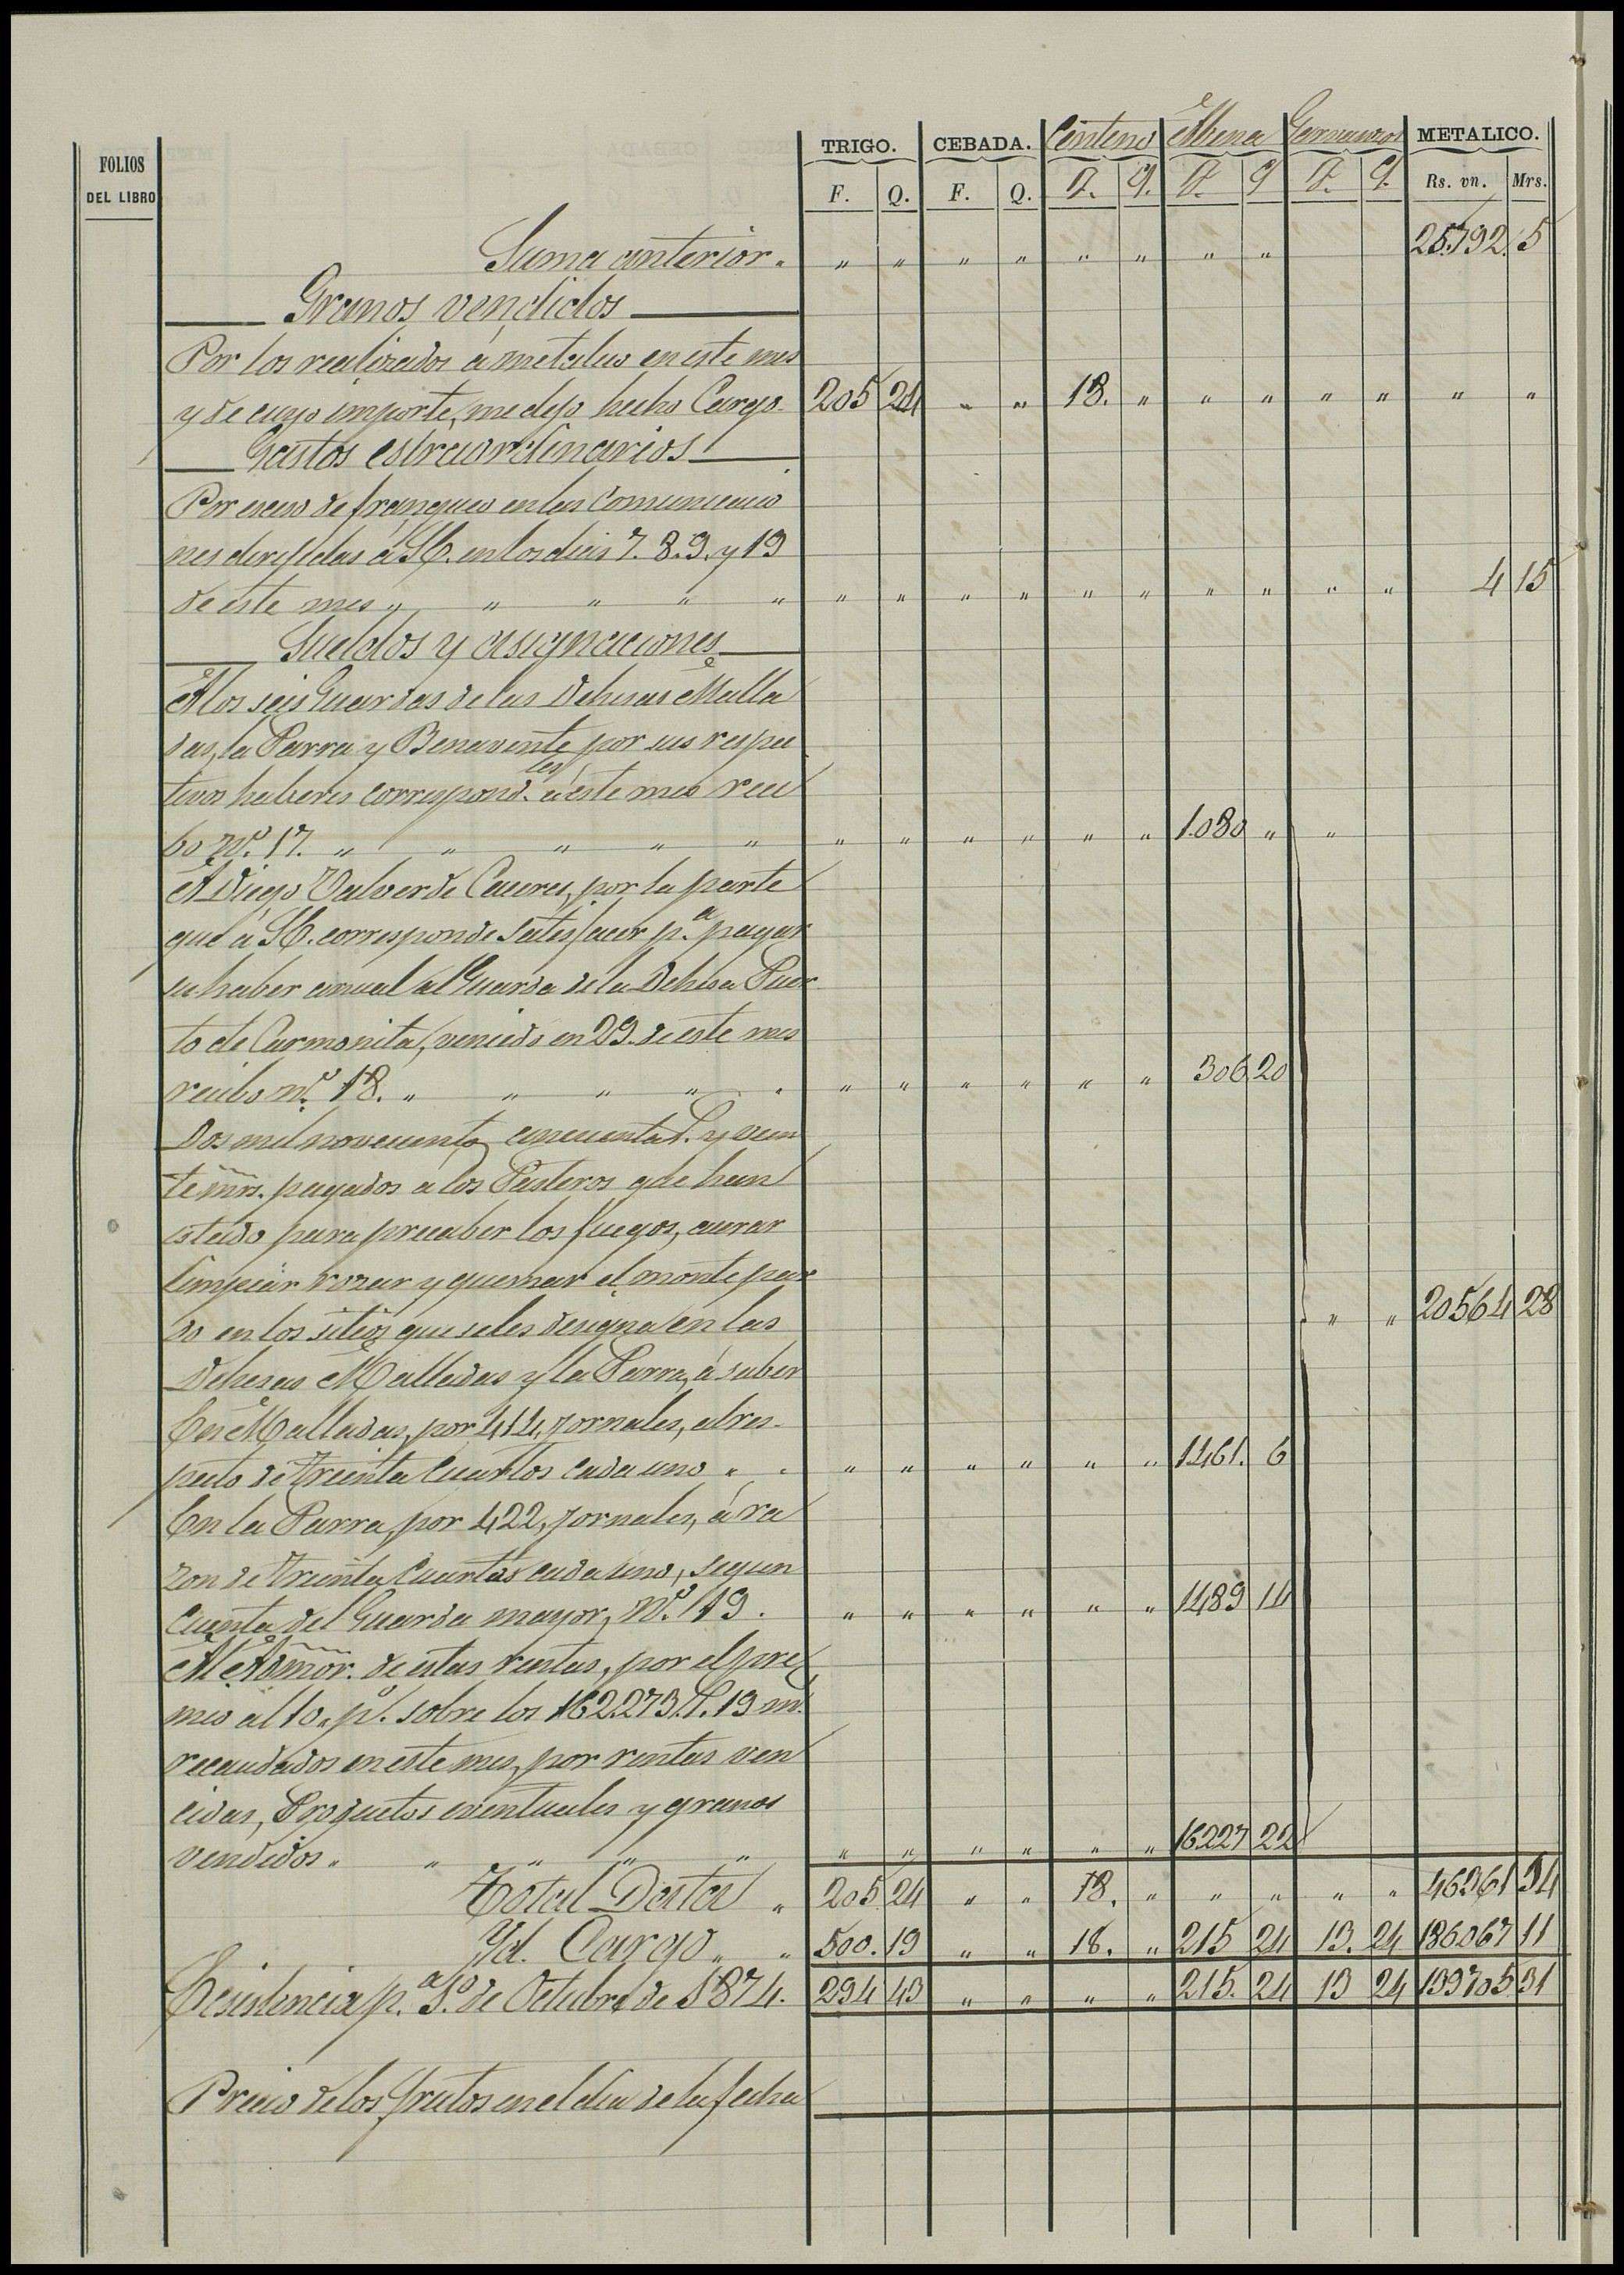 FOLIOS DEL LIBRO TRIGO. CEBADA. Centeno Abena Garvanzos METALICO.
F. Q. F. Q. F. Q. F. Q. F. Q. Rs. vn. Mrs.
Suma anterior. " " " " " " " " 25.792. 5
Granos vendidos
Por los realizados á metalico en este mes
y de cuyo importe, me dejo hecho Cargo. 205 24 " " 18. " " " " " " "
Gastos estraordinarios
Por exceso de franqueo en las Comunicacio
nes dirigidas á S.E. en los dias 7. 8. 9. y 19
de este mes " " " " " " " " " " " " " " " 4 15
Sueldos y asignaciones
A los seis Guardas de las Dehesas Malla
das, la Parra y Benavente, por sus respec
tivos haberes correspond.tes á este mes reci
bo Nº. 17. " " " " " " " " " " " 1.080 " "
A Diego Valverde Caceres, por la parte
que á S.E. corresponde satisfacer p.a pagar
su haber anual al Guarda de la Dehesa Puer
to de Carmonita, vencido en 29. de este mes
recibo nº. 18. " " " " " " " " " " 306 20
Dos mil novecientos cincuenta r. y vein
te mrs. pagados a los Pasteros que han
estado para precaber los fuegos, aclarar
limpiar rozar y quemar el monte par
do en los sitios que se les designa en las " " 20564 28
Dehesas Malladas y la Parra, á saber
En Malladas, por 414, jornales, al res-
pecto de treinta Cuartos cada uno " " " " " " " " 1461. 6
En la Parra, por 422, jornales, á ra
zon de treinta Cuartos cada uno, segun
Cuenta del Guarda mayor, Nº. 19. " " " " " " 1489 14
Al Admor. de estas rentas, por el pre
mio al 10. p%. sobre los 162.273 r. 19 m.
recaudados en este mes, por rentas ven
cidas, Productos eventuales y granos
vendidos " " " " " " " " " " " 16227 22
Total Data " 205 24 " " 18. " " " " " 46361 34
Id. Cargo " " 500. 19 " " 18. " 215 24 13. 24 186067 11
Existencia p.a 1º de Octubre de 1874. 294 43 " " " " 215. 24 13 24 139705 31
Precio de los frutos en el dia de la fecha